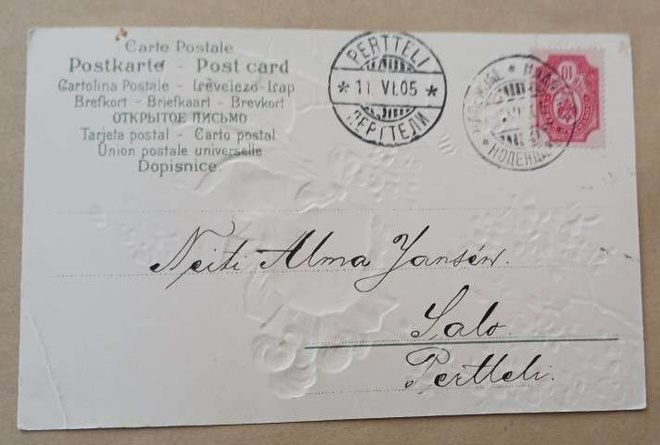 Carte Postale
Postkarte - Post card
Cartolina Postale - Levelezö-Lap
Brefkort - Briefkaart - Brevkort
ОТКРЫТОЕ ПИСЬМО
Tarjeta postal - Carto postal
Union postale universelle
Dopisnice.
PERTTELI
* 11. VI. 05 *
ПЕРТТЕЛИ
10
Neiti Alma Jansén.
Salo.
Pertteli.